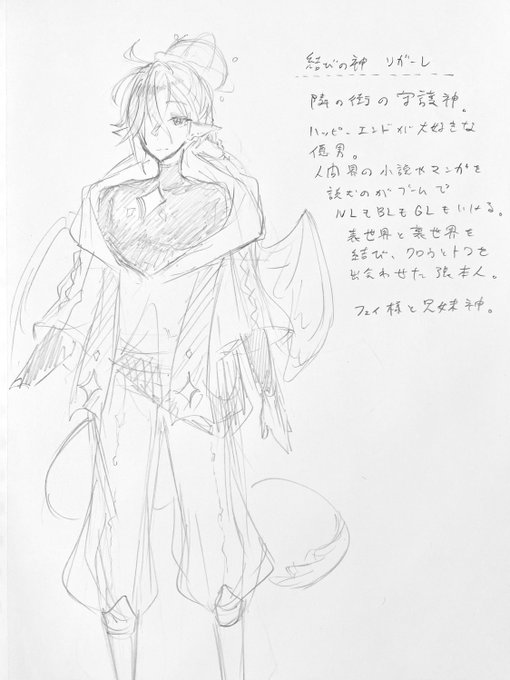 結びの神 リガーレ
隣の街の守護神。
ハッピーエンドが大好きな
優男。
人間界の小説やマンガを
読むのがブームで
NLもBLもGLもいける。
表世界と裏世界を
結び、クロウとトワを
出会わせた張本人。
フェイ様と兄妹神。